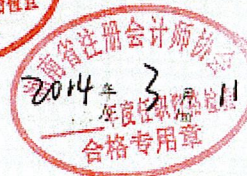 南省注册会计师协会
2014年3月11
年度任职资格检查
合格专用章